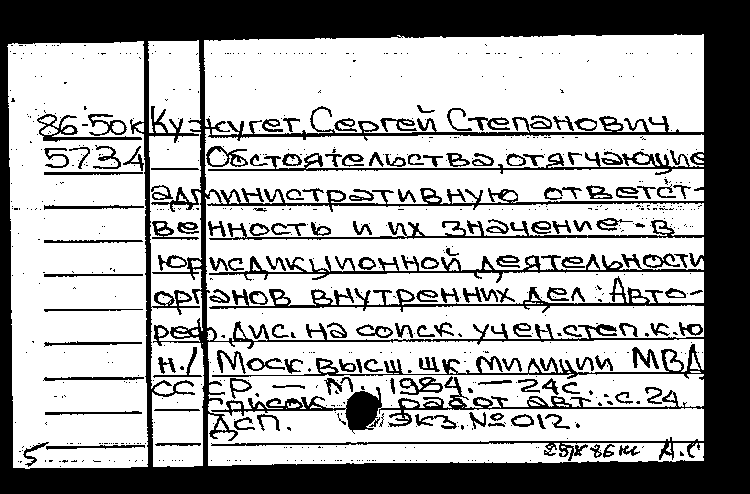 86-50к Кужугет, Сергей Степанович.
5734 Обстоятельства, отягчающие
административную ответст-
венность и их значение в
юрисдикционной деятельности
органов внутренних дел: Авто-
реф. дис. на соиск. учен. степ. к. ю.
н./ Моск. высш. шк. милиции МВД
СССР. — М., 1984. — 24с.
Список работ авт.: с. 24.
ДСП. Экз. № 012.
5 А.С